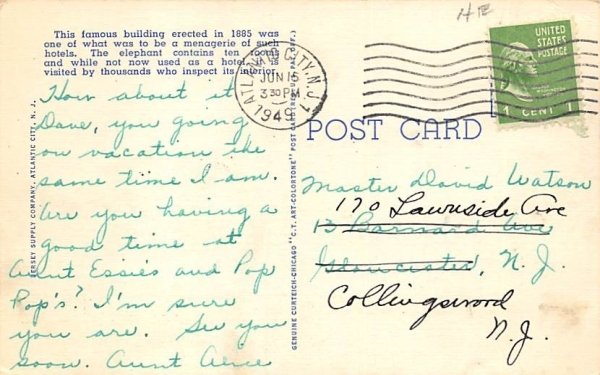 This famous building erected in 1885 was
one of what was to be a menagerie of such
hotels. The elephant contains ten rooms
and while not now used as a hotel, is
visited by thousands who inspect its interior.
How about it
Dave, you going
on vacation the
same time I am.
Are you having a
good time at
Aunt Essie's and Pop
Pop's? I'm sure
you are. See you
soon. Aunt Alice
JERSEY SUPPLY COMPANY, ATLANTIC CITY, N. J.
GENUINE CURTEICH-CHICAGO "C.T. ART-COLORTONE" POST CARD (REG. U.S. PAT. OFF.)
ATLANTIC CITY, N.J.
JUN 15
3 30 PM
1949
UNITED
STATES
POSTAGE
1 CENT 1
POST CARD
Master David Watson
170 Lawnside Ave
13 Barnard Ave
Gloucester, N. J.
Collingswood
N.J.